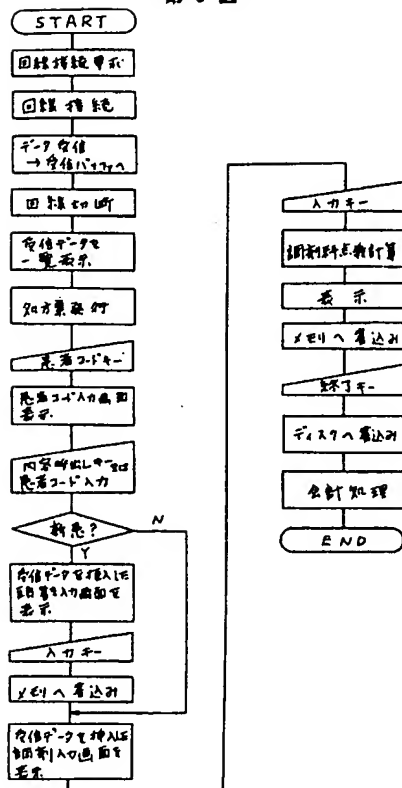 START
回線接続要求
回線接続
データ受信
→受信バッファへ
回線切断
受信データを
一覧表示
処方箋発行
患者コードキー
患者コード入力画面
表示
内容呼出しキー又は
患者コード入力
新患?
N
Y
受信データを挿入した
入力画面を
表示
入力キー
メモリへ書込み
受信データを挿入した
調剤入力画面を
表示
入力キー
調剤料点数計算
表示
メモリへ書込み
終了キー
ディスクへ書込み
会計処理
END